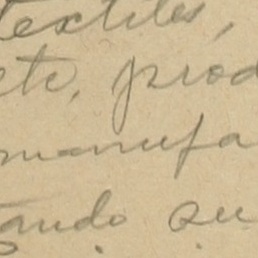 textiles,
etc, prod
manufa
tando su